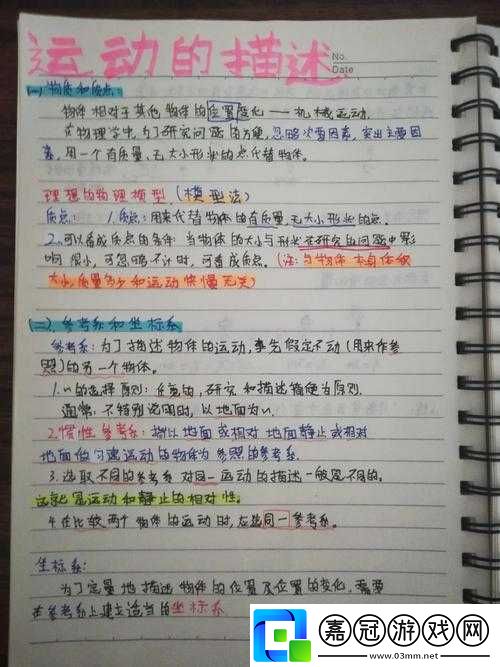 运动的描述
No.
Date
(一) 物质和质点:
物体相对于其他物体的位置变化——机械运动.
在物理学中,为了研究问题的方便,忽略次要因素,突出主要因
素,用一个有质量,无大小形状的点代替物体。
理想的物理模型(模型法)
质点: 1.质点:用来代替物体的有质量,无大小形状的点.
2.可以看成质点的条件:当物体的大小与形状在研究的问题中影
响很小,可忽略不计时,可看成质点。(注:与物体本身体积
大小,质量多少和运动快慢无关)
(二)、参考系和坐标系
参考系:为了描述物体的运动,事先假定不动(用来作参
照)的另一个物体。
1.~的选择原则:任意的,研究和描述简便为原则.
通常,不特别说明时,以地面为~.
2.惯性参考系:指以地面或相对地面静止或相对
地面做匀速运动的物体为参照的参考系.
3.选取不同的参考系对同一运动的描述一般是不同的.
这就是运动和静止的相对性。
4.在比较两个物体的运动时,应选同一参考系。
坐标系:
为了定量地描述物体的位置及位置的变化,需要
在参考系上建立适当的坐标系
嘉冠游戏网
www.03mm.net